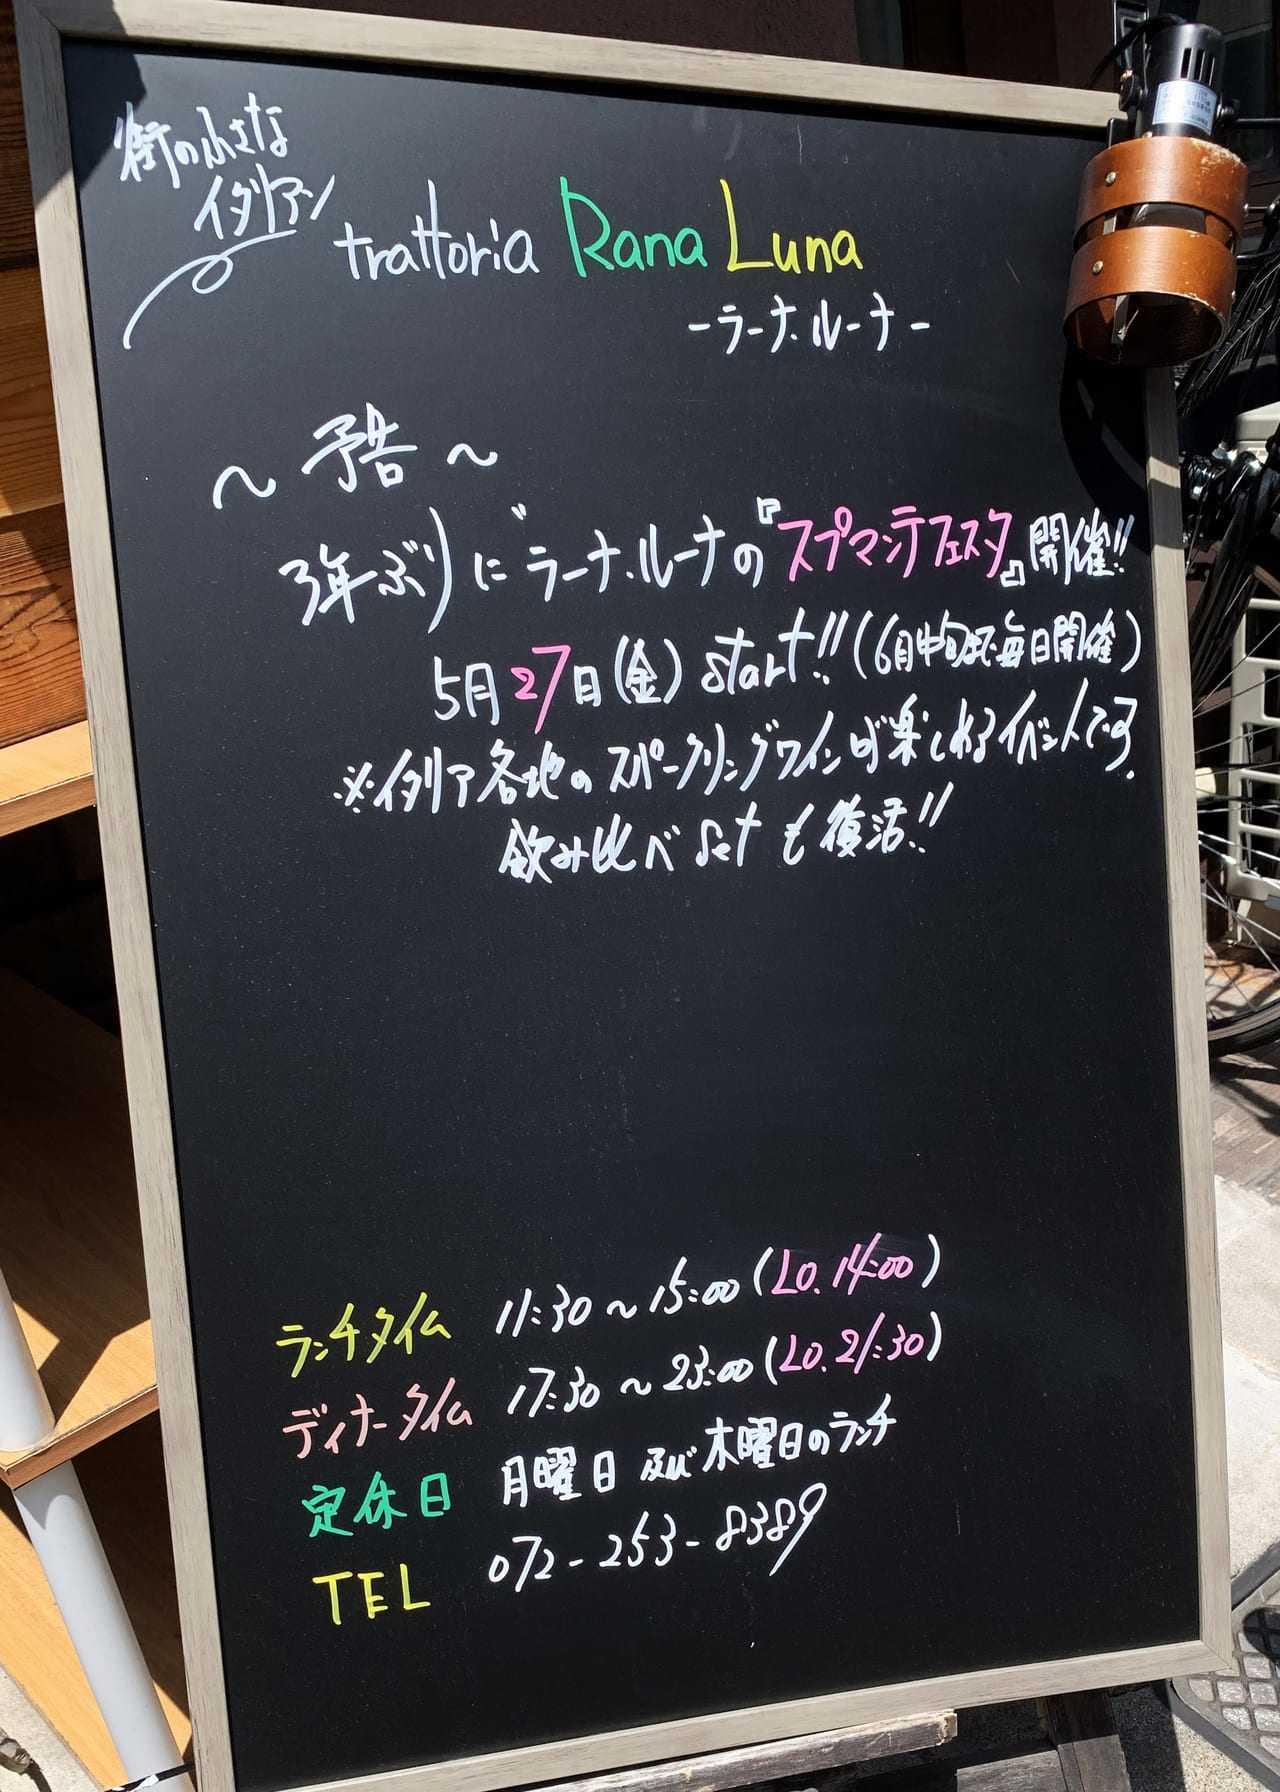 街の小さな
イタリアン
trattoria Rana Luna
-ラーナ・ルーナ-
～予告～
3年ぶりにラーナ・ルーナの『スプマンテフェスタ』開催!!
5月27日(金)start!!(6月中旬まで毎日開催)
※イタリア各地のスパークリングワインが楽しめるイベントです.
飲み比べsetも復活!!
ランチタイム 11:30～15:00(LO.14:00)
ディナータイム 17:30～23:00(LO.21:30)
定休日 月曜日及び木曜日のランチ
TEL 072-253-8389